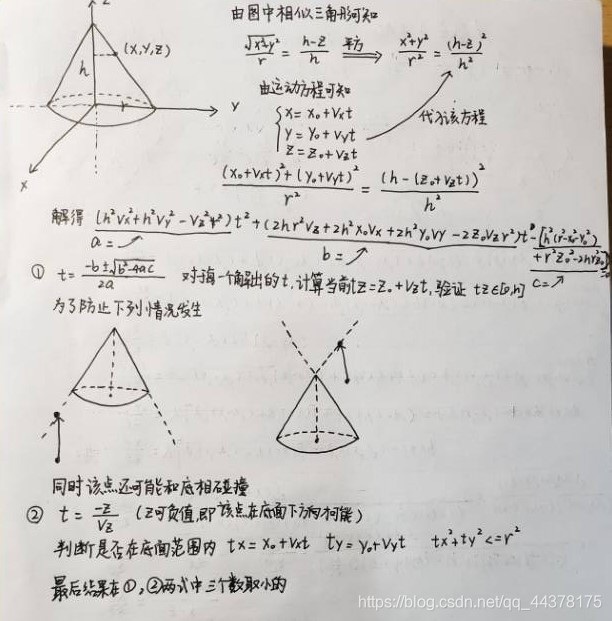 由图中相似三角形可知
√(x²+y²)/r = (h-z)/h 平方⟹ (x²+y²)/r² = (h-z)²/h²
Z
(X,Y,Z)
h
r
Y
X
由运动方程可知
x = x₀+Vxt
y = y₀+Vyt
z = z₀+Vzt
代入该方程
((x₀+Vxt)²+(y₀+Vyt)²)/r² = (h-(z₀+Vzt))²/h²
解得 (h²Vx²+h²Vy²-Vz²r²)t²+(2hr²Vz+2h²x₀Vx+2h²y₀Vy-2z₀Vzr²)t-[h²(r²-x₀²-y₀²)
+r²z₀²-2hr²z₀]=0
a= b= c=
① t = (-b±√(b²-4ac))/2a 对每一个解出的t,计算当前tz=z₀+Vzt,验证 tz∈[0,h]
为了防止下列情况发生
同时该点还可能和底相碰撞
② t = -z/Vz (z可负值,即该点在底面下方有可能)
判断是否在底面范围内 tx=x₀+Vxt ty=y₀+Vyt tx²+ty²<=r²
最后结果在①,②两式中三个数取小的
https://blog.csdn.net/qq_44378175